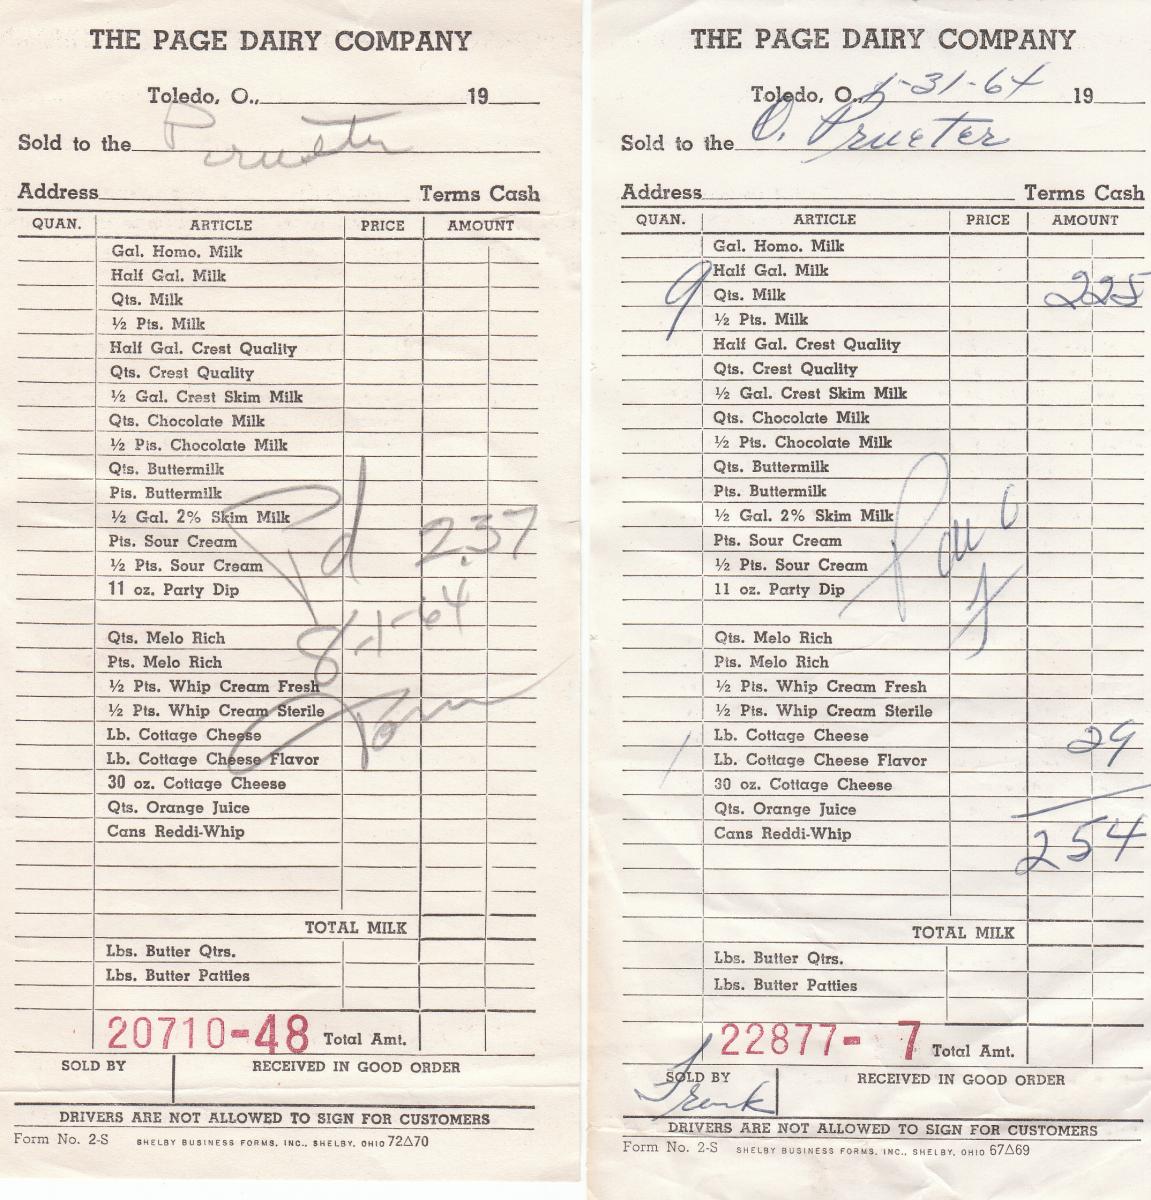 THE PAGE DAIRY COMPANY
Toledo, O., 19
Sold to the Prueter
Address Terms Cash
QUAN. ARTICLE PRICE AMOUNT
Gal. Homo. Milk
Half Gal. Milk
Qts. Milk
½ Pts. Milk
Half Gal. Crest Quality
Qts. Crest Quality
½ Gal. Crest Skim Milk
Qts. Chocolate Milk
½ Pts. Chocolate Milk
Qts. Buttermilk
Pts. Buttermilk
½ Gal. 2% Skim Milk
Pd 2.37
Pts. Sour Cream
½ Pts. Sour Cream
11 oz. Party Dip
8-1-64
Qts. Melo Rich
Pts. Melo Rich
½ Pts. Whip Cream Fresh
½ Pts. Whip Cream Sterile
Tom
Lb. Cottage Cheese
Lb. Cottage Cheese Flavor
30 oz. Cottage Cheese
Qts. Orange Juice
Cans Reddi-Whip
TOTAL MILK
Lbs. Butter Qtrs.
Lbs. Butter Patties
20710-48 Total Amt.
SOLD BY RECEIVED IN GOOD ORDER
DRIVERS ARE NOT ALLOWED TO SIGN FOR CUSTOMERS
Form No. 2-S SHELBY BUSINESS FORMS, INC., SHELBY, OHIO 72Δ70
THE PAGE DAIRY COMPANY
Toledo, O., -31-64 19
Sold to the O. Prueter
Address Terms Cash
QUAN. ARTICLE PRICE AMOUNT
Gal. Homo. Milk
Half Gal. Milk
9 Qts. Milk 225
½ Pts. Milk
Half Gal. Crest Quality
Qts. Crest Quality
½ Gal. Crest Skim Milk
Qts. Chocolate Milk
½ Pts. Chocolate Milk
Qts. Buttermilk
Pts. Buttermilk
½ Gal. 2% Skim Milk
Paid
Pts. Sour Cream
½ Pts. Sour Cream
11 oz. Party Dip
F
Qts. Melo Rich
Pts. Melo Rich
½ Pts. Whip Cream Fresh
½ Pts. Whip Cream Sterile
1 Lb. Cottage Cheese 29
Lb. Cottage Cheese Flavor
30 oz. Cottage Cheese
Qts. Orange Juice
Cans Reddi-Whip 254
TOTAL MILK
Lbs. Butter Qtrs.
Lbs. Butter Patties
22877- 7 Total Amt.
SOLD BY RECEIVED IN GOOD ORDER
Frank
DRIVERS ARE NOT ALLOWED TO SIGN FOR CUSTOMERS
Form No. 2-S SHELBY BUSINESS FORMS, INC., SHELBY, OHIO 67Δ69